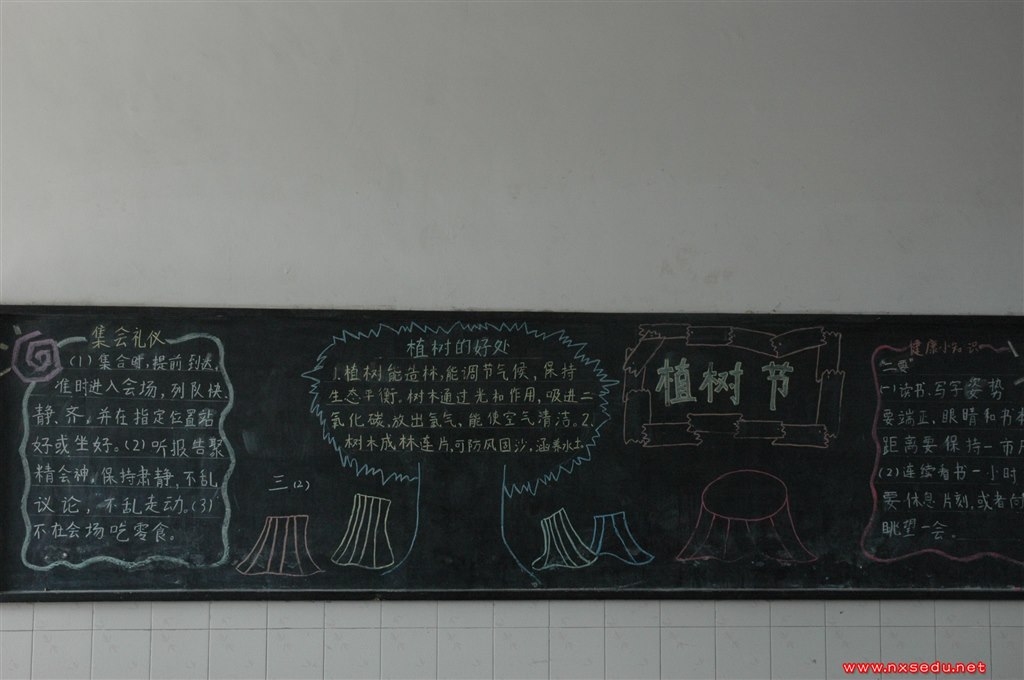 集会礼仪
(1) 集合时,提前到达,
准时进入会场,列队快、
静、齐,并在指定位置站
好或坐好。(2) 听报告聚
精会神,保持肃静,不乱
议论,不乱走动。(3)
不在会场吃零食。
三(2)
植树的好处
1.植树能造林,能调节气候,保持
生态平衡.树木通过光和作用,吸进二
氧化碳,放出氧气,能使空气清洁.2.
树木成林连片,可防风固沙,涵养水土.
植树节
健康小知识
二要
(1)读书.写字姿势
要端正,眼睛和书本
距离要保持一市尺
(2)连续看书一小时
要休息片刻,或者向
眺望一会。
www.nxsedu.net